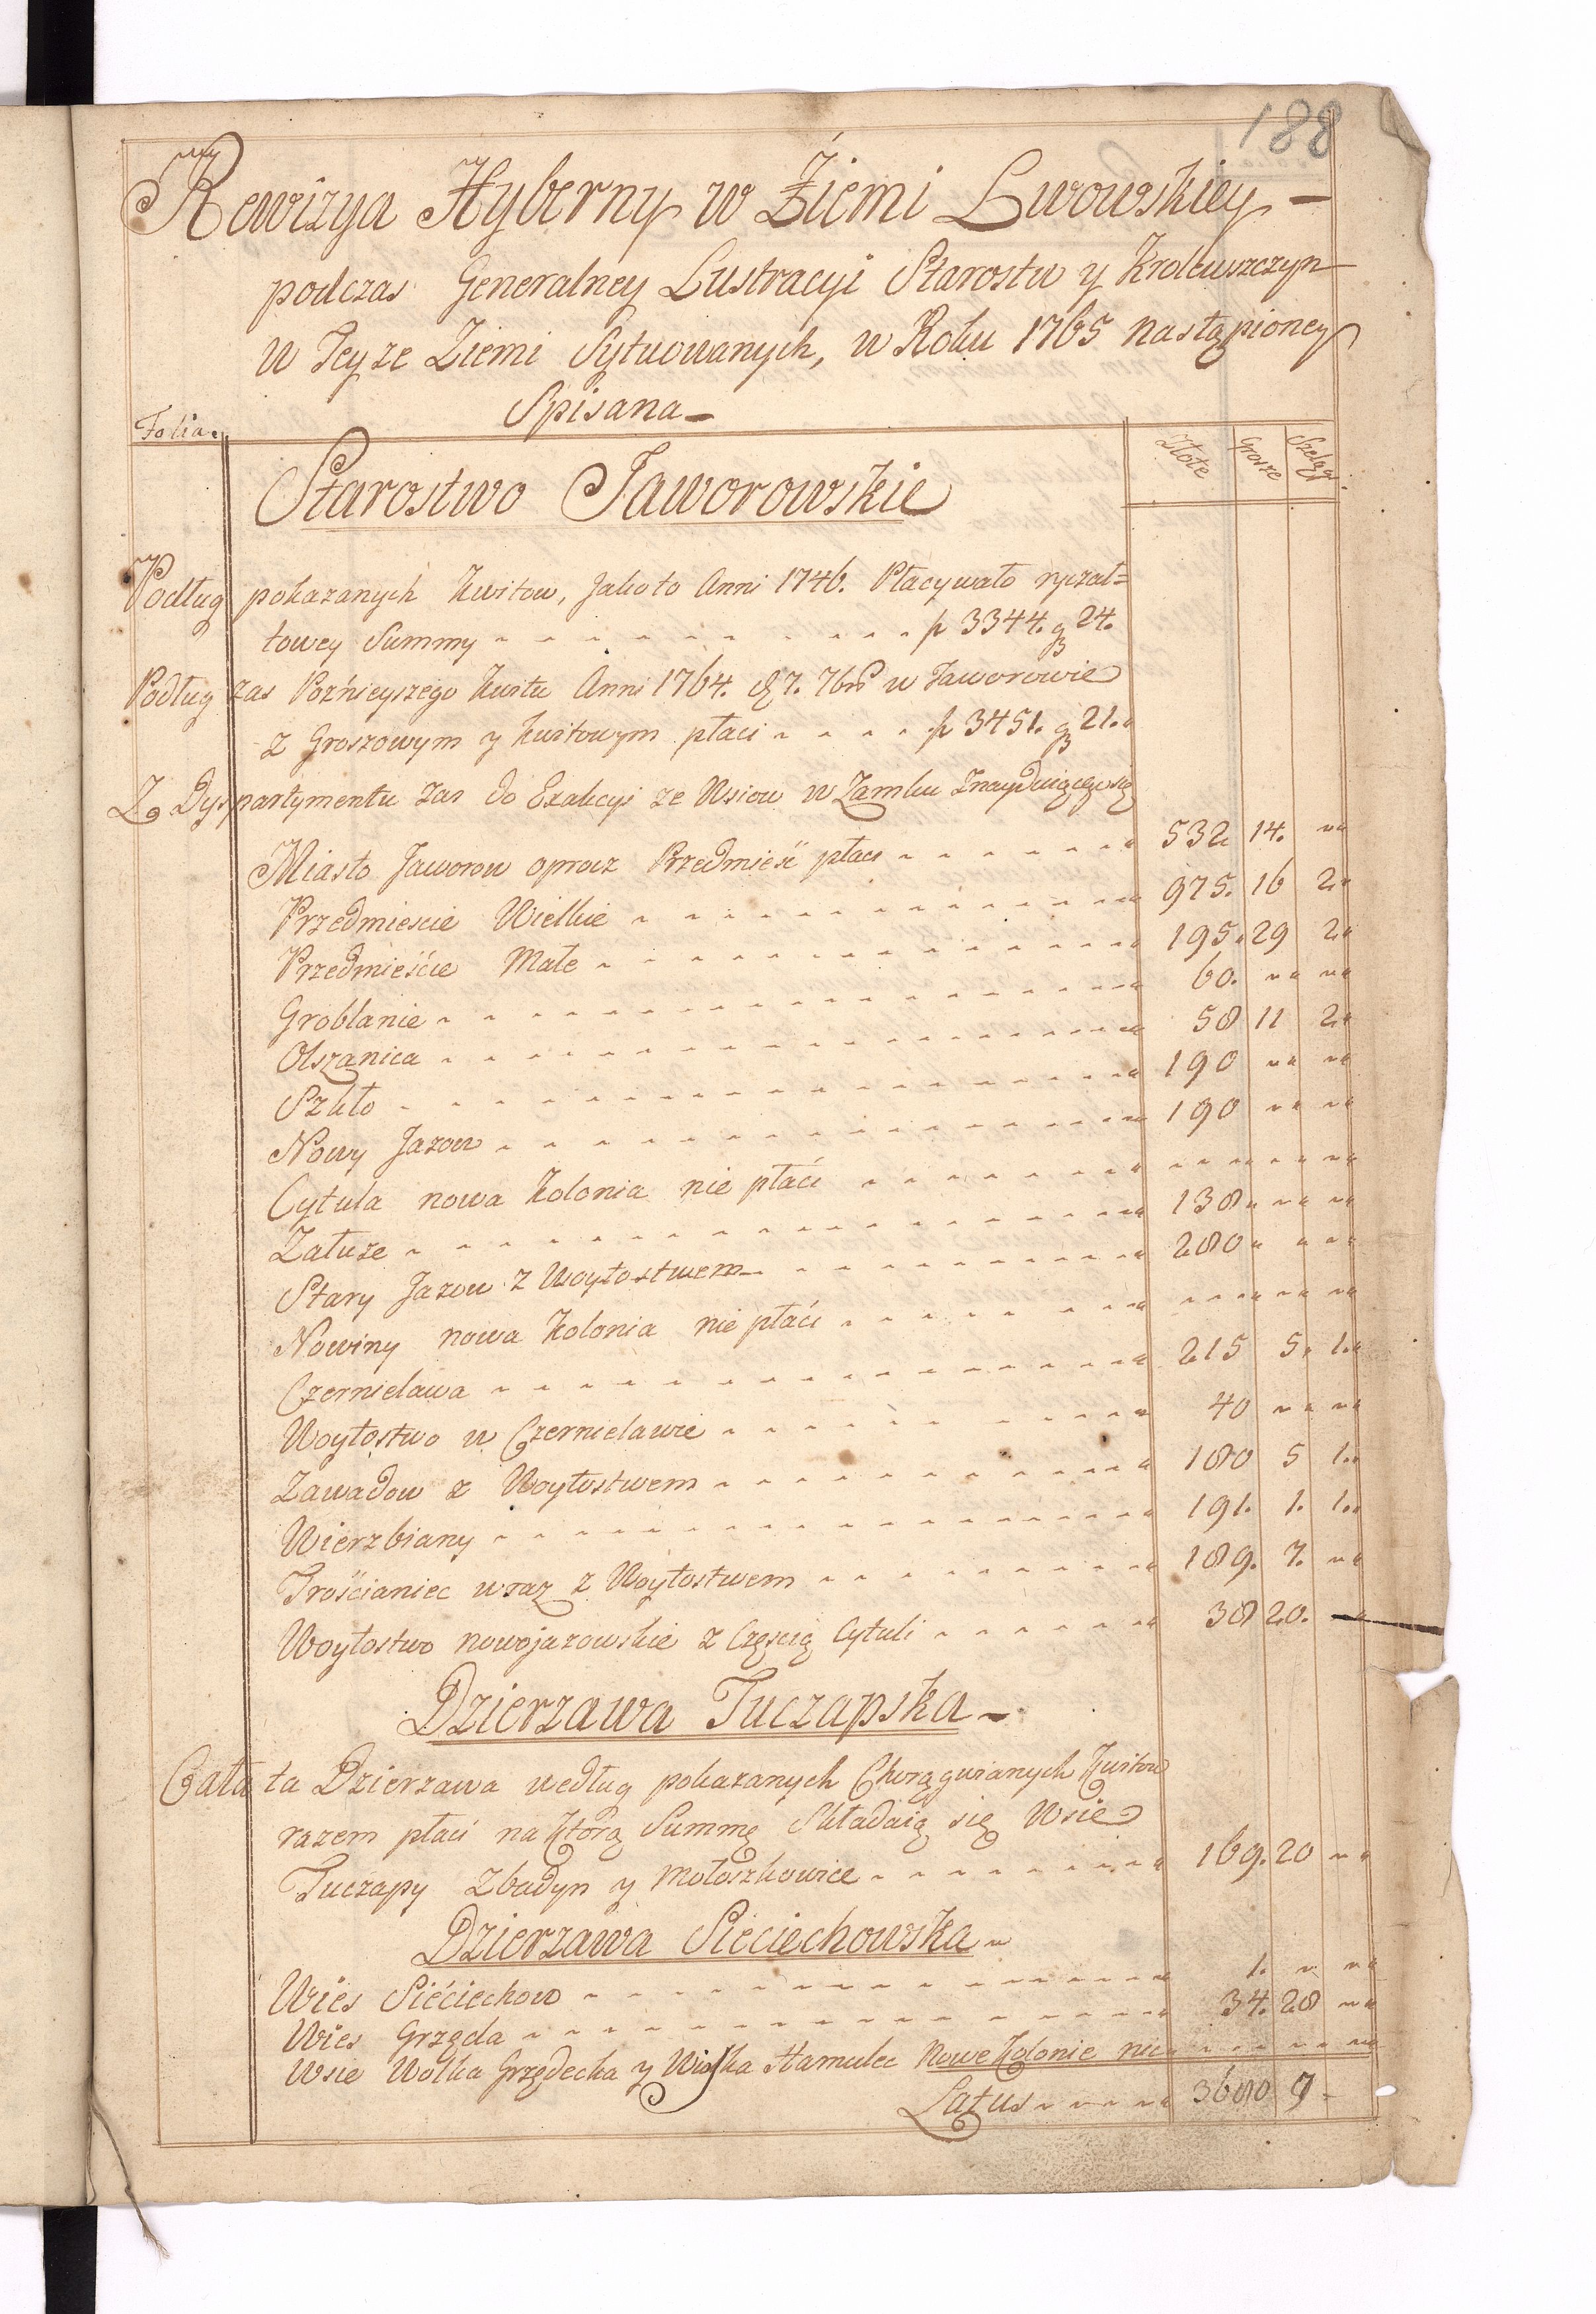 188
Rewizya Hyberny w Ziemi Lwowskiey
podczas Generalney Lustracyi Starostw y Krolewszczyzn
w Teyze Ziemi Sytuowanych, w Roku 1765 nastąpioney
Spisana
Folia. Złote Grosze Szelągi
Starostwo Jaworowskie
Podług pokazanych Kwitow, Jako to Anni 1746. Płacywało ryczał=
towey Summy p 3344. g 24.
Podług zas Poźnieyszego Kwitu Anni 1764. 7. 7bris w Jaworowie
z Groszowym y Kwitowym płaci p 3451. g 21.
Z Dyspartymentu zas do Exakcyi ze Wsiow w Zamku Znayduiącego się
Miasto Jaworow oprocz Przedmieść płaci 532 14. "
Przedmiescie Wielkie 975. 16 2
Przedmieście Małe 195. 29 2
Groblanie 60. " "
Olszanica 58 11 2
Szkło 190 " "
Nowy Jazow 190 " "
Cytula nowa Kolonia nie płaci " " "
Załuze 138 " "
Stary Jazow z Woytostwem 280 " "
Nowiny nowa Kolonia nie płaci " " "
Czernielawa 215 5. 1.
Woytostwo w Czernielawie 40 " "
Zawadow z Woytostwem 180 5 1.
Wierzbiany 191. 1. 1.
Trościaniec wraz z Woytostwem 189. 7. "
Woytostwo nowojazowskie z Częscią Cytuli 38 20. "
Dzierzawa Tuczapska
Cała ta Dzierzawa według pokazanych Chorągwianych Kwitow
razem płaci na Ktorą Summę Składaią się Wsie
Tuczapy Zbadyn y Mołoszkowice 169. 20 "
Dzierzawa Sieciechowska
Wies Siećiechow 1. " "
Wies Grzęda 34. 28 "
Wsie Wolka Grzędecka y Wioska Hamulec Nowe Kolonie nic " " "
Latus 3680 9 -